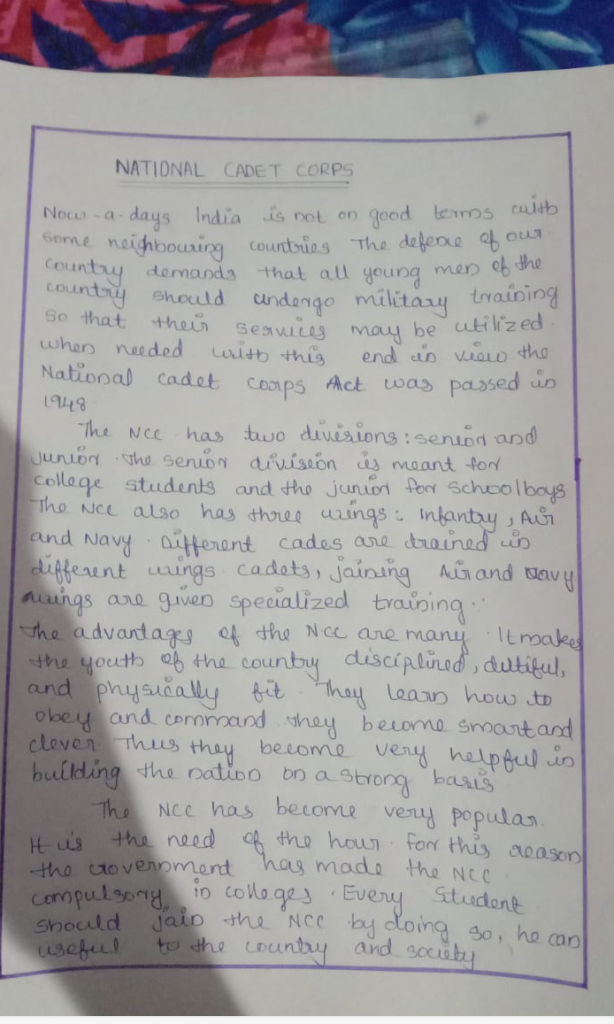 NATIONAL CADET CORPS
Now-a-days India is not on good terms with
some neighbouring countries The defence of our
country demands that all young men of the
country should undergo military training
so that their services may be utilized.
when needed with this end in view the
National cadet corps Act was passed in
1948
The NCC has two divisions: senior and
junior. The senior division is meant for
college students and the junior for schoolboys.
The NCC also has three wings: Infantry, Air
and Navy. Different cades are trained in
different wings. cadets, joining Air and Navy
wings are given specialized training.
The advantages of the NCC are many. It makes
the youth of the country disciplined, dutiful,
and physically fit. They learn how to
obey and command they become smart and
clever. Thus they become very helpful in
building the nation on a strong basis
The NCC has become very popular.
It is the need of the hour. For this reason
the Government has made the NCC
compulsory in colleges. Every student
should join the NCC by doing so, he can
useful to the country and society